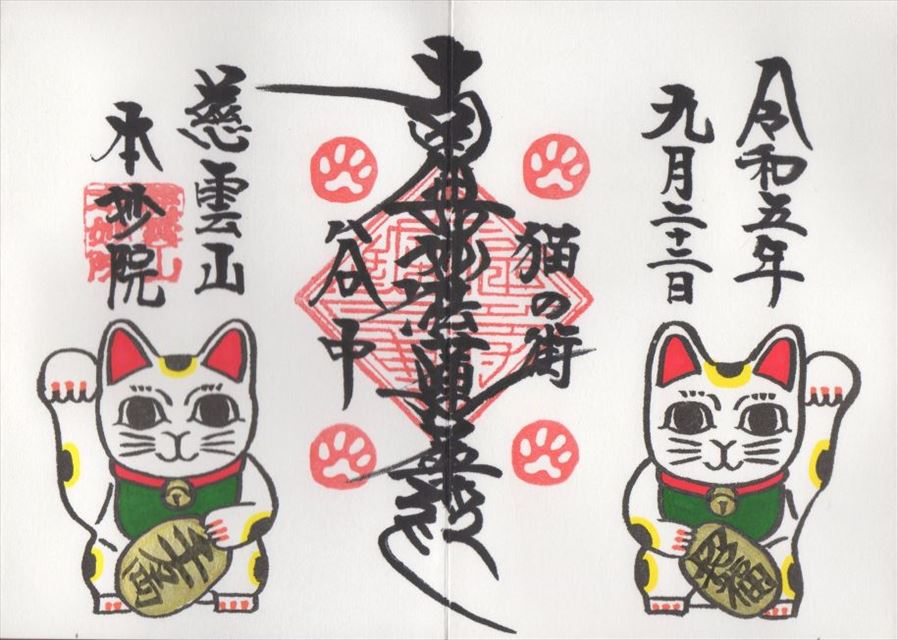 令和五年
九月二十二日
猫の街
南無妙法蓮華経
谷中
慈雲山
本妙院
招福